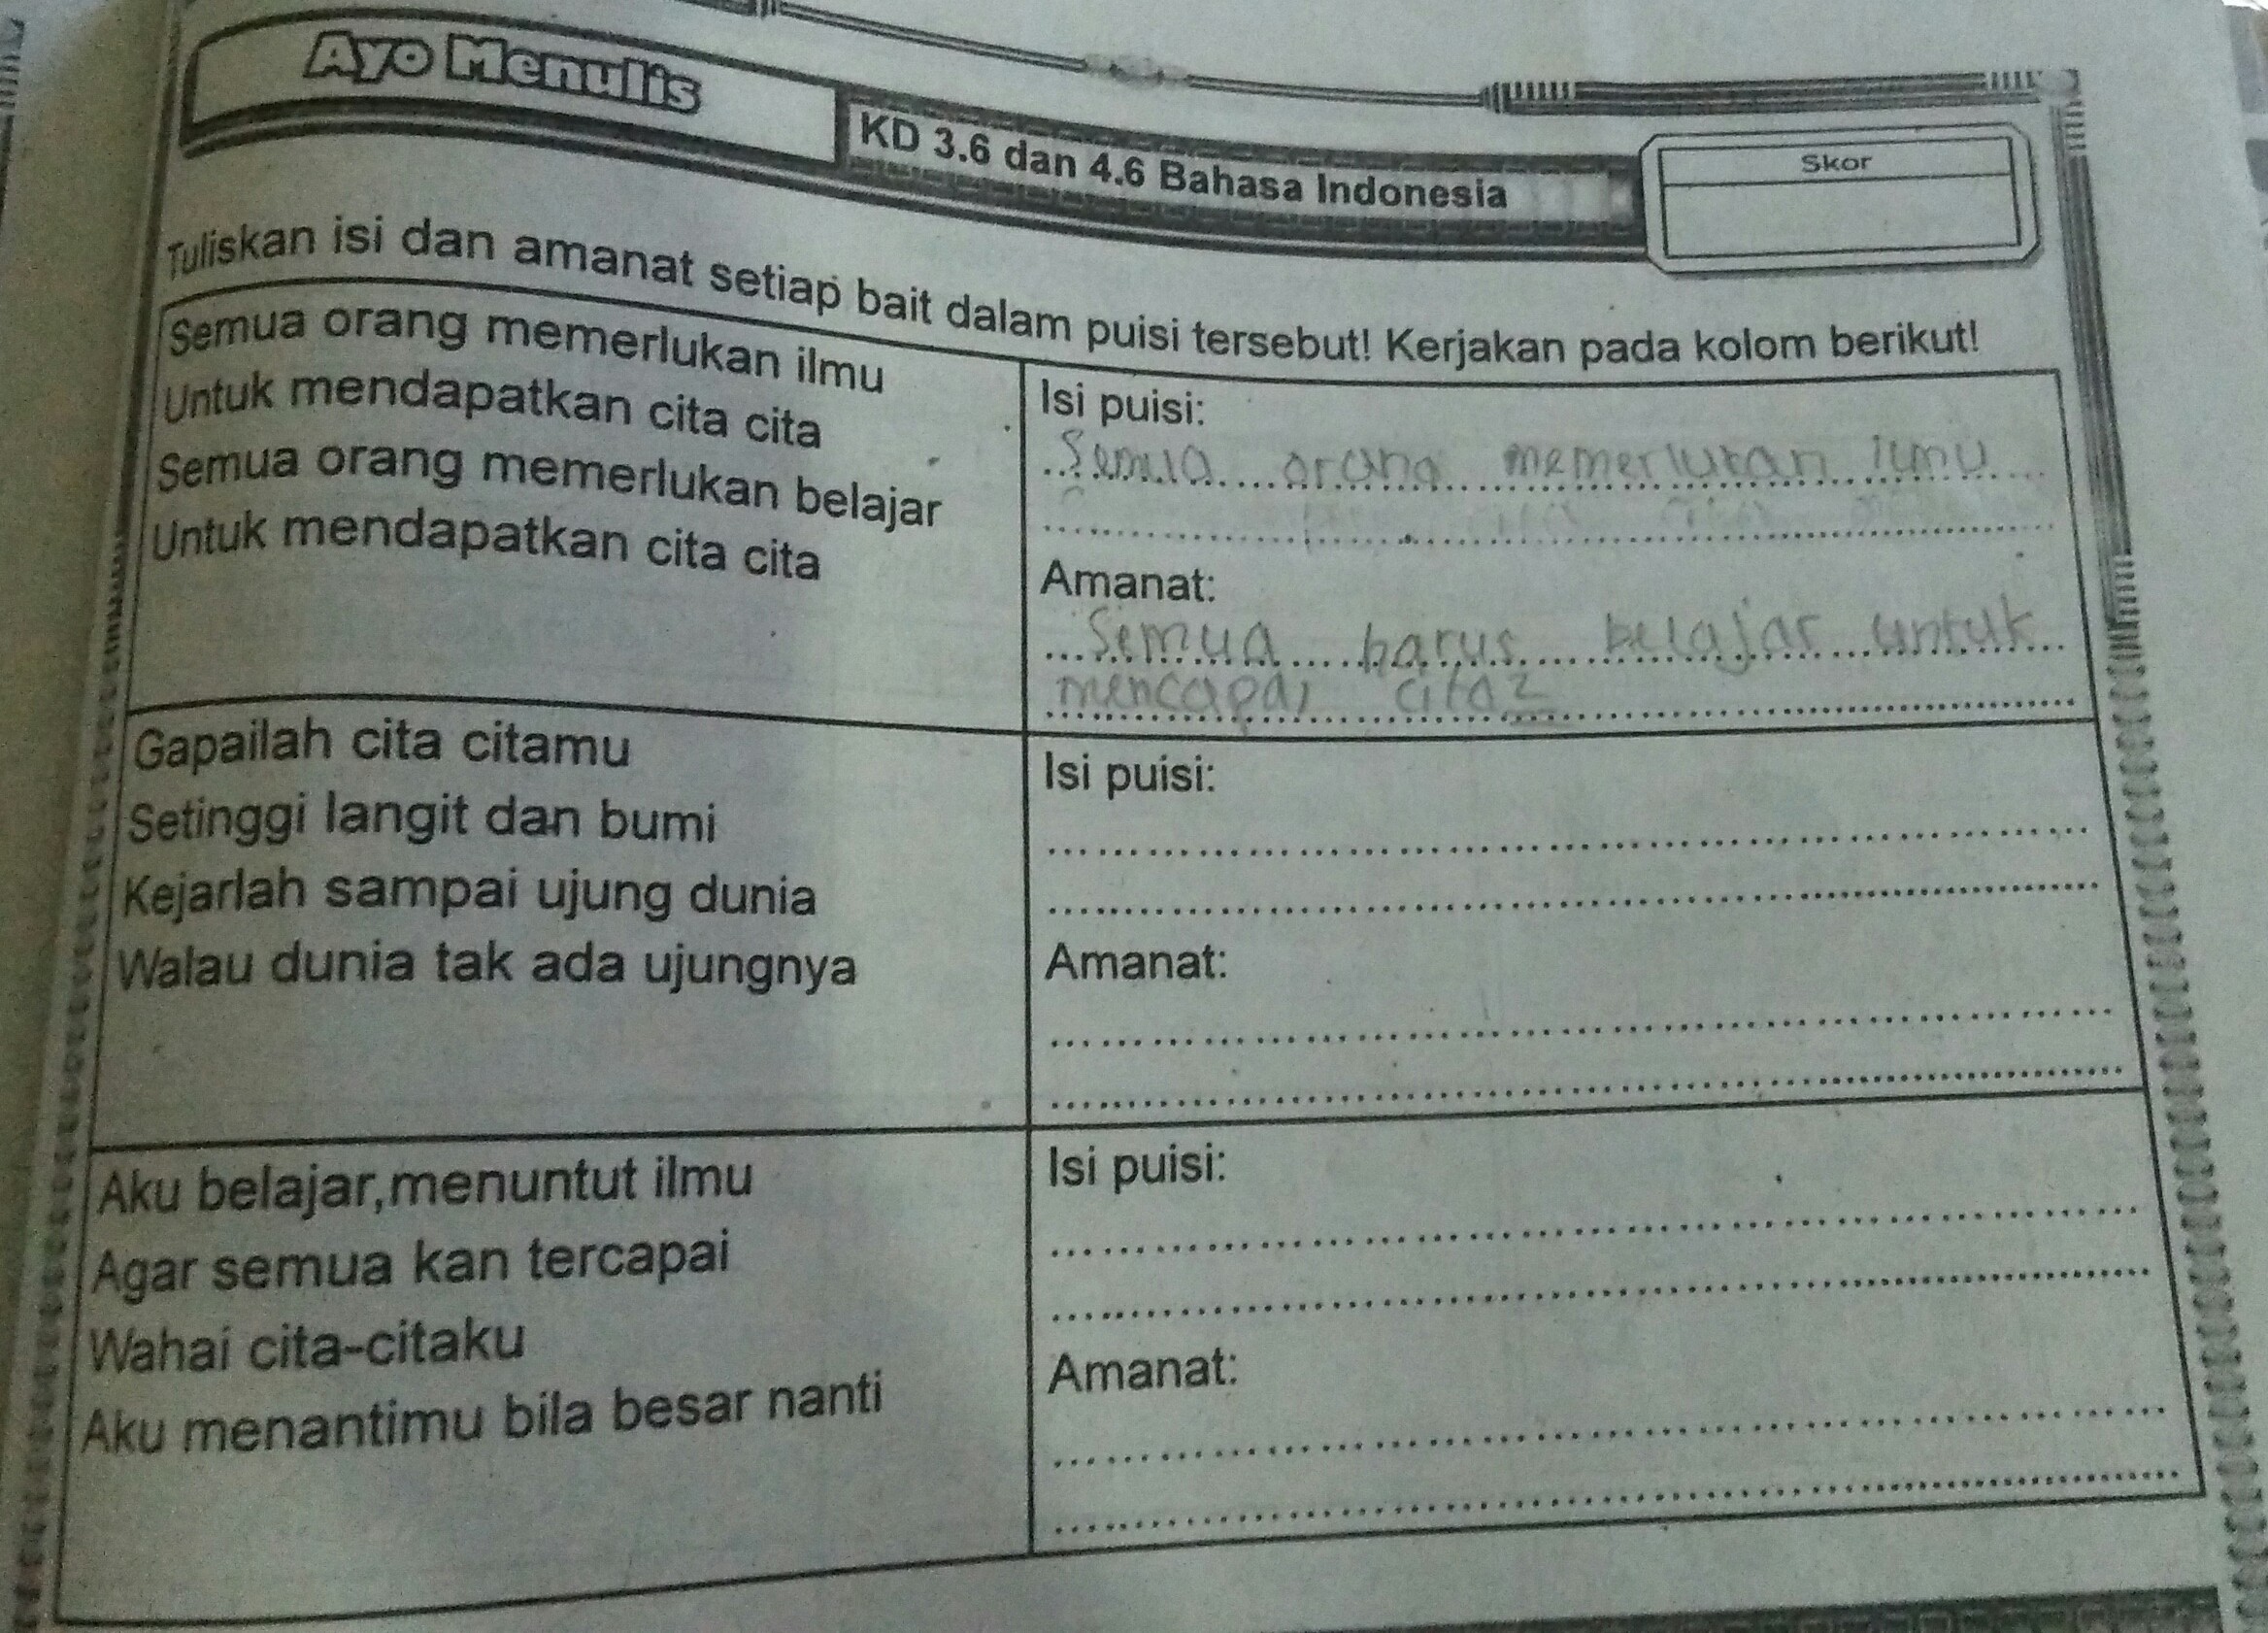 Ayo Menulis
KD 3.6 dan 4.6 Bahasa Indonesia
Skor
Tuliskan isi dan amanat setiap bait dalam puisi tersebut! Kerjakan pada kolom berikut!
Semua orang memerlukan ilmu
Untuk mendapatkan cita cita
Semua orang memerlukan belajar
Untuk mendapatkan cita cita
Isi puisi:
Semua orang memerlukan ilmu
Amanat:
Semua harus belajar untuk
mencapai cita2
Gapailah cita citamu
Setinggi langit dan bumi
Kejarlah sampai ujung dunia
Walau dunia tak ada ujungnya
Isi puisi:
Amanat:
Aku belajar,menuntut ilmu
Agar semua kan tercapai
Wahai cita-citaku
Aku menantimu bila besar nanti
Isi puisi:
Amanat: